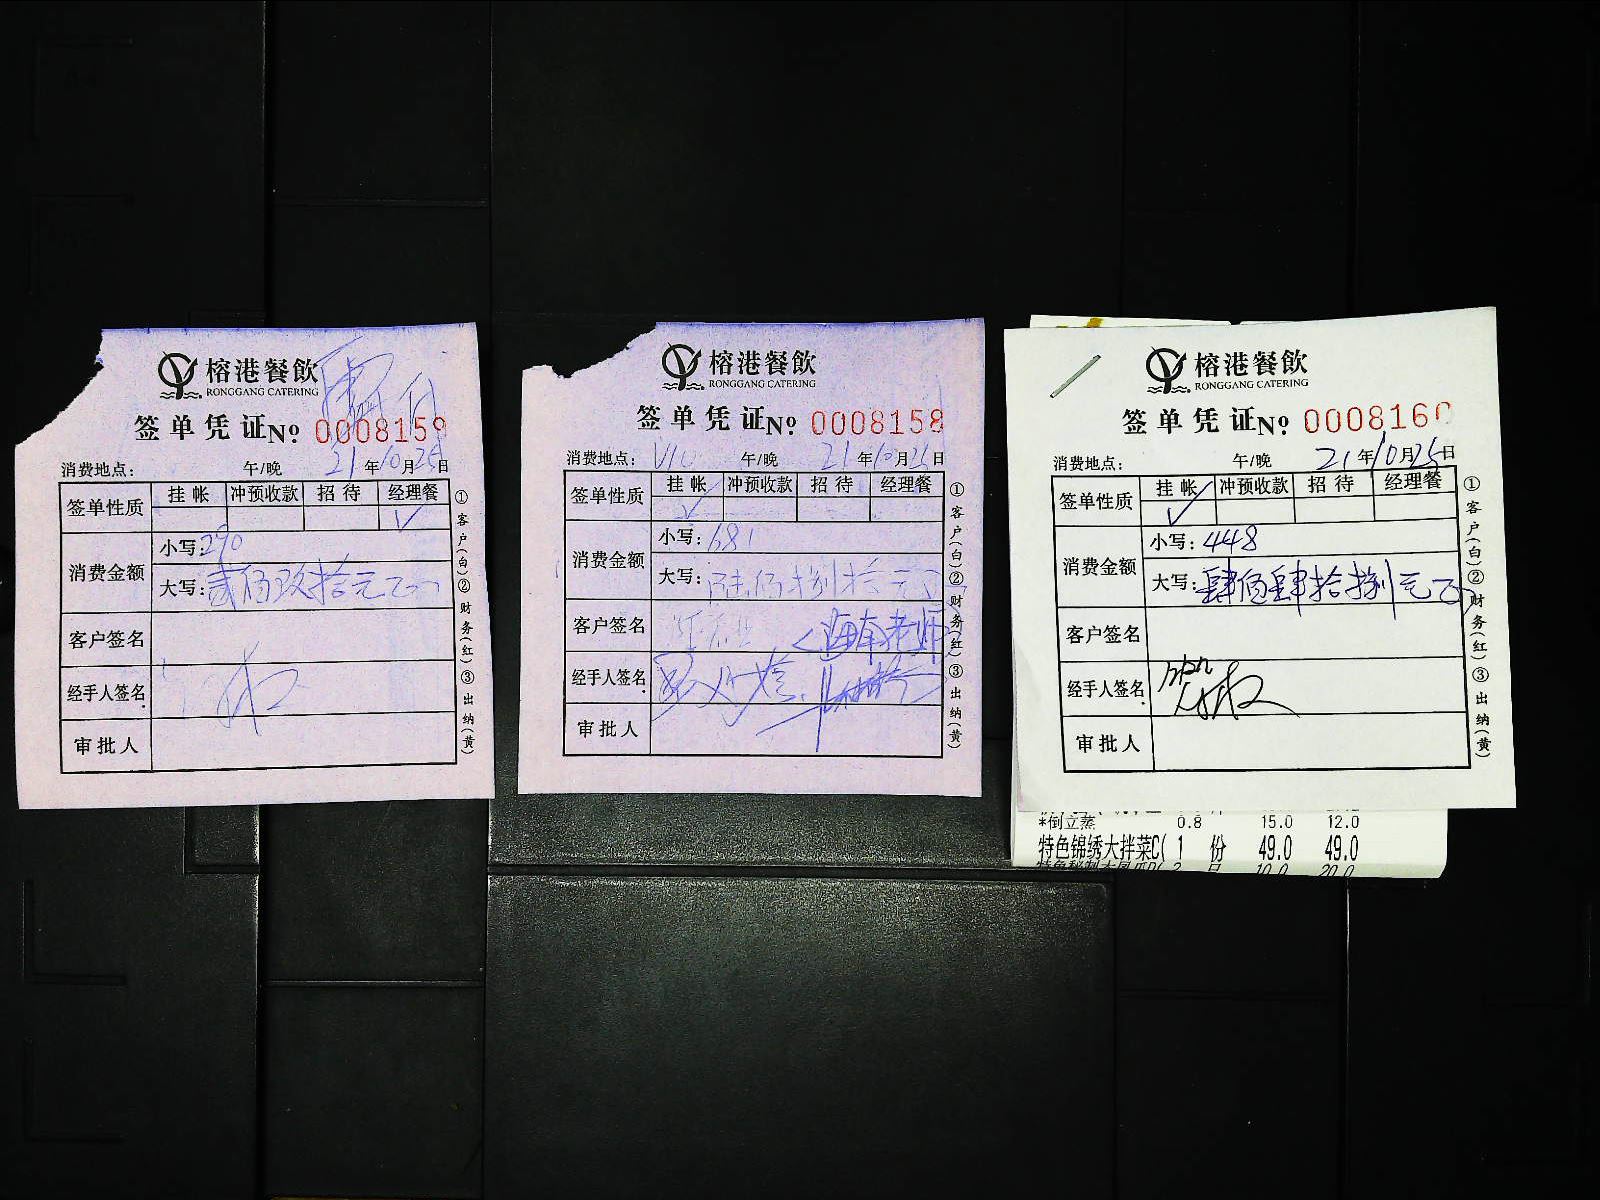 榕港餐飲
RONGGANG CATERING
签单凭证 No 0008159
消费地点： 午/晚 21年10月25日
签单性质 挂帐 冲预收款 招待 经理餐
✓
消费金额 小写：290
大写：贰佰玖拾元
客户签名
经手人签名
审批人
①客户(白)②财务(红)③出纳(黄)
榕港餐飲
RONGGANG CATERING
签单凭证 No 0008158
消费地点： 午/晚 21年10月25日
签单性质 挂帐 冲预收款 招待 经理餐
✓
消费金额 小写：681
大写：陆佰捌拾元
客户签名 海南老师
经手人签名
审批人
①客户(白)②财务(红)③出纳(黄)
榕港餐飲
RONGGANG CATERING
签单凭证 No 0008160
消费地点： 午/晚 21年10月25日
签单性质 挂帐 冲预收款 招待 经理餐
✓
消费金额 小写：448
大写：肆佰肆拾捌元
客户签名
经手人签名
审批人
①客户(白)②财务(红)③出纳(黄)
*倒立蒸 0.8 15.0 12.0
特色锦绣大拌菜C( 1 份 49.0 49.0